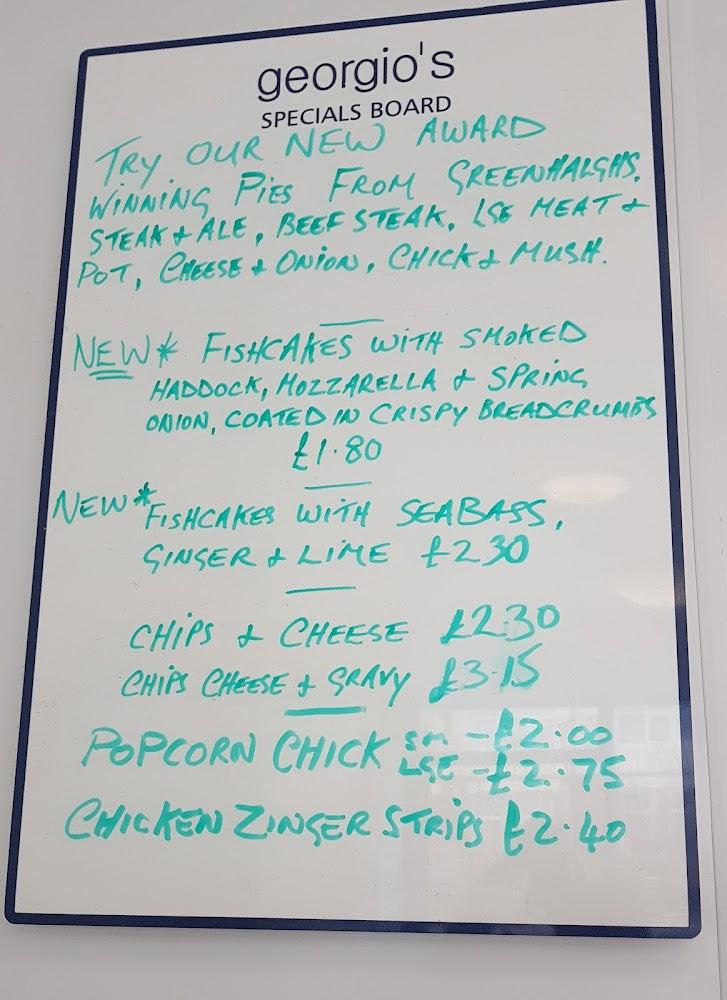 georgio's
SPECIALS BOARD
TRY OUR NEW AWARD
WINNING PIES FROM GREENHALGHS.
STEAK & ALE, BEEF STEAK, LSE MEAT &
POT, CHEESE & ONION, CHICK & MUSH.
NEW* FISHCAKES WITH SMOKED
HADDOCK, MOZZARELLA & SPRING
ONION, COATED IN CRISPY BREADCRUMBS
£1.80
NEW* FISHCAKES WITH SEABASS,
GINGER & LIME £2.30
CHIPS & CHEESE £2.30
CHIPS CHEESE & GRAVY £3.15
POPCORN CHICK SM - £2.00
LSE - £2.75
CHICKEN ZINGER STRIPS £2.40